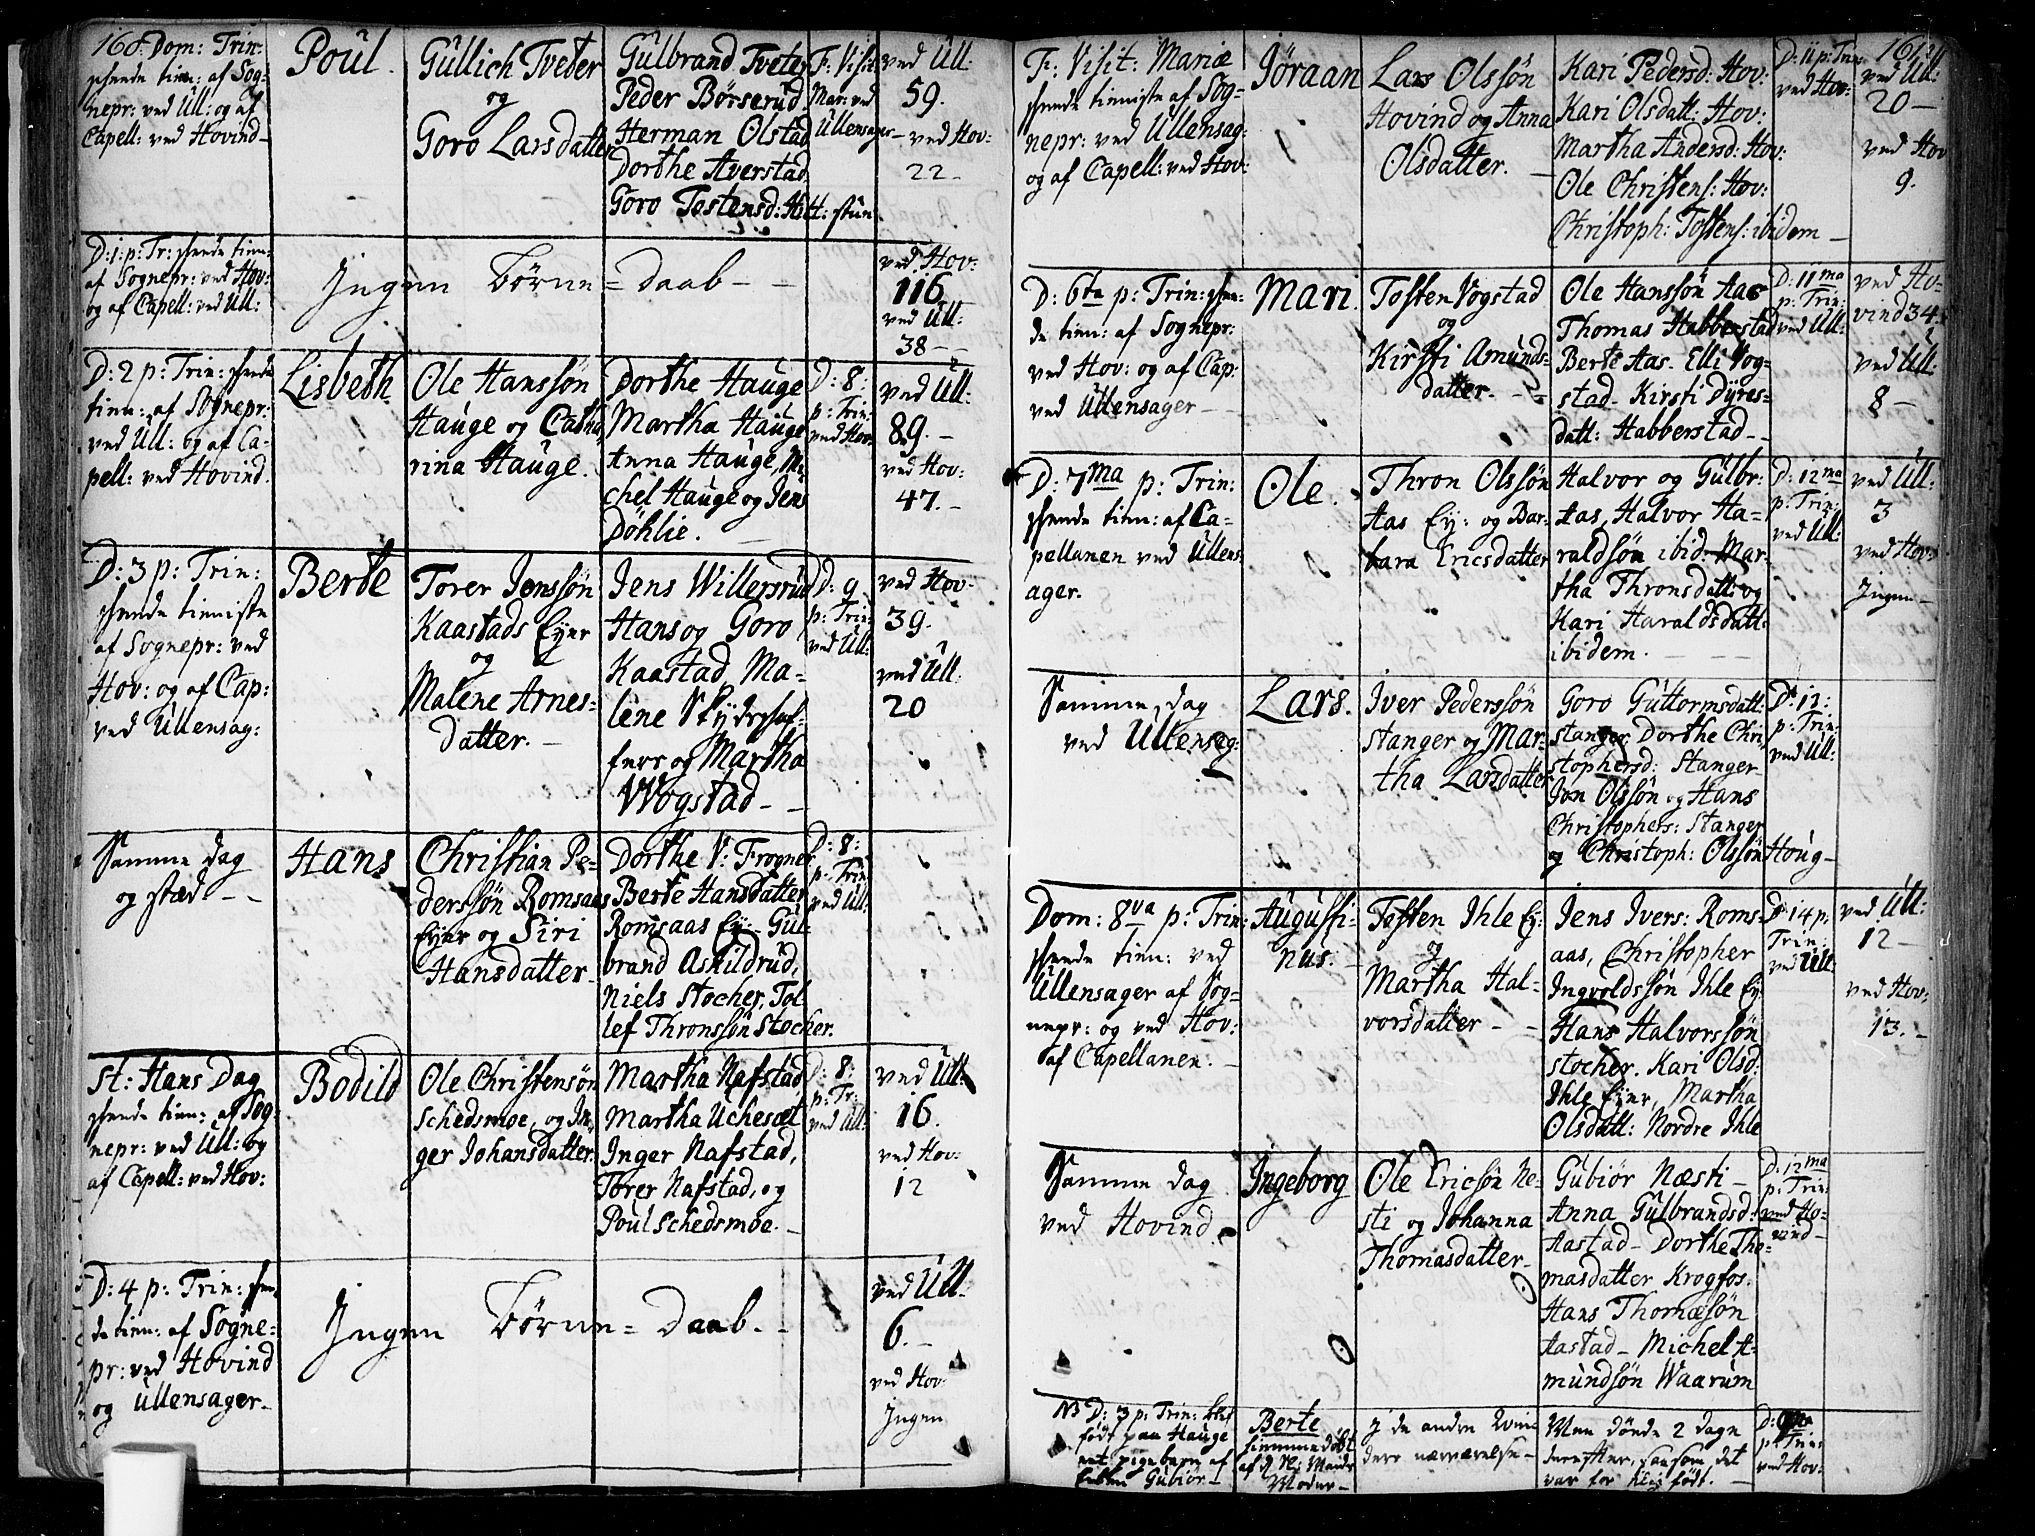 160. Dom: Trin:
skeede tien: af Sog-
nepr: ved Ull: og af
Capell: ved Hovind-
Poul.
Gullich Tveter
og
Goro Larsdatter
Gulbrand Tveter
Peder Börserud
Herman Olstad
Dorthe Averstad
Goro Tostensd: H: H: stün
F: Visit:
Mar: ved
Ullensager-
ved Ull:
59.
ved Hov:
22-
D: 1: p: Tr: skeede tien-
af Sognepr: ved Hov:
og af Capell: ved Ull:
Ingen Börne-daab--
ved Hov:
116
ved Ull:
38-
D: 2 p: Trin: skeede
tien: af Sognepr:
ved Ull: og af Ca-
pell: ved Hovind.
Lisbeth.
Ole Hanssön
Hauge og Catha-
rina Hauge.
Dorthe Hauge
Martha Hauge
Anna Hauge, Mi-
chel Hauge og Jens
Döhlie.
D: 8:
p: Trin:
ved Hov:
ved Ull:
89.-
ved Hov:
47.-
D: 3 p: Trin:
skeede tieniste
af Sognepr: ved
Hov: og af Cap:
ved Ullensag:
Berte
Torer Jenssön
Kaastads Eyer
og
Malene Arnes-
datter.-
Jens Willersrud
Hans og Goro
Kaastad, Ma-
lene Skydsskaf-
fers og Martha
Wogstad--
D: 9
p: Trin:
ved Ull:
ved Hov:
39.
ved Ull:
20
Samme dag
og stæd--
Hans
Christian Pe-
derssön Romsaas
Eyer og Siri
Hansdatter-
Dorthe V: Frogner
Berte Hansdatter
Romsaas Ey- Gul-
brand Askildrud,
Niels Stocher, Tol-
lef Thronssön Stocher.
D: 8:
p: Trin
ved Ull:
St: Hans Dag
skeede tien: af Sog
nepr: ved Ull: og
af Capell: ved Hov:
Bodild
Ole Christensön
Schedsmoe, og In-
ger Johansdatter.
Martha Nafstad,
Martha Uchesæt,
Inger Nafstad,
Torer Nafstad, og
Poul Schedsmoe.-
D: 8:
p: Tr:
ved Ull:
ved Ull:
16.
ved Hov:
12
D: 4 p: Trin: skee-
de tien: af Sogne-
pr: ved Hovind
og Ullensager-
Ingen Börne-Daab.-
ved Ull:
6.-
ved Hov:
Ingen
161
F: Visit: Mariæ
skeede tieniste af Sog-
nepr: ved Ullensag:
og af Capell: ved Hov:
Jöraan
Lars Olssön
Hovind og Anna
Olsdatter.-
Kari Pedersd: Hov:
Kari Olsdatt: Hov:
Martha Andersd: Hov:
Ole Christens: Hov:
Christoph: Tostens: ibidem-
D: 11 p: Trin:
ved Hov:
ved Ull:
20-
ved Hov
9.
D: 6ta p: Trin: skee-
de tien: af Sognepr:
ved Hov: og af Cap:
ved Ullensager-
Mari.
Tosten Vogstad
og
Kirsti Amunds-
datter.--
Ole Hanssön Aas
Thomas Habberstad
Berte Aas. Elli Vog-
stad- Kirsti Dyres-
datt: Habberstad--
D: 11ma
p: Trin:
ved Ull:
ved Ho-
vind 34.
ved Ull:
8-
D: 7ma p: Trin:
skeede tien: af Ca-
pellanen ved Ullens-
ager.
Ole.
Thron Olssön
Aas Ey: og Bar-
bara Ericsdatter
Halvor og Gulbr:
Aas, Halvor Ha-
raldsön ibid: Mar-
tha Thronsdatt: og
Kari Haraldsdatt:
ibidem.---
D: 12ma
p: Trin:
ved Ull:
ved Ull:
3
ved Hov:
Ingen-
Samme dag
ved Ullensag:
Lars.
Iver Pederssön
Stanger og Mar-
tha Larsdatter
Goro Guttormsdatt:
Stanger, Dorthe Chri-
stophersd: Stanger
Jon Olssön og Hans
Christophers: Stanger
og Christoph: Olssön Houg-
D: 12:
p: Trin:
ved Ull:
Dom: 8va p: Trin:
skeede tien: ved
Ullensager af Sog-
nepr: og ved Hov:
af Capellanen.-
Augusti-
nus.
Tosten Ihle Ey:
og
Martha Hal-
vorsdatter--
Jens Ivers: Roms-
aas, Christopher
Ingvoldssön Ihle Ey
Hans Halvorssön
Stocher. Kari Olsd:
Ihle Eyer, Martha
Olsdatt: Nordre Ihle
D: 14 p:
Trin:
ved Ull:
ved Ull:
12-
ved Hov:
13.-
Samme dag
ved Hovind.
Ingeborg
Ole Ericsön Ne-
sti og Johanna
Thomasdatter-
Gubiör Næsti-
Anna Gulbrandsd:
Aastad- Dorthe Tho-
masdatter Krogfos.
Hans Thomæsön
Aastad- Michel A-
mundsön Waarum
D: 12ma
p: Trin:
ved Ho-
vind-
NB D: 3 p: Trin: blef
födt paa Hauge
et pigebarn af
Gubiör-
Berte
hiemmedöbt
Moder-
I de andre Qvin
ders nærværelse-
Men döde 2 dage
derefter, saasom det
var for lidt födt.-
D: 9na
p: Trin:
ved Hov: